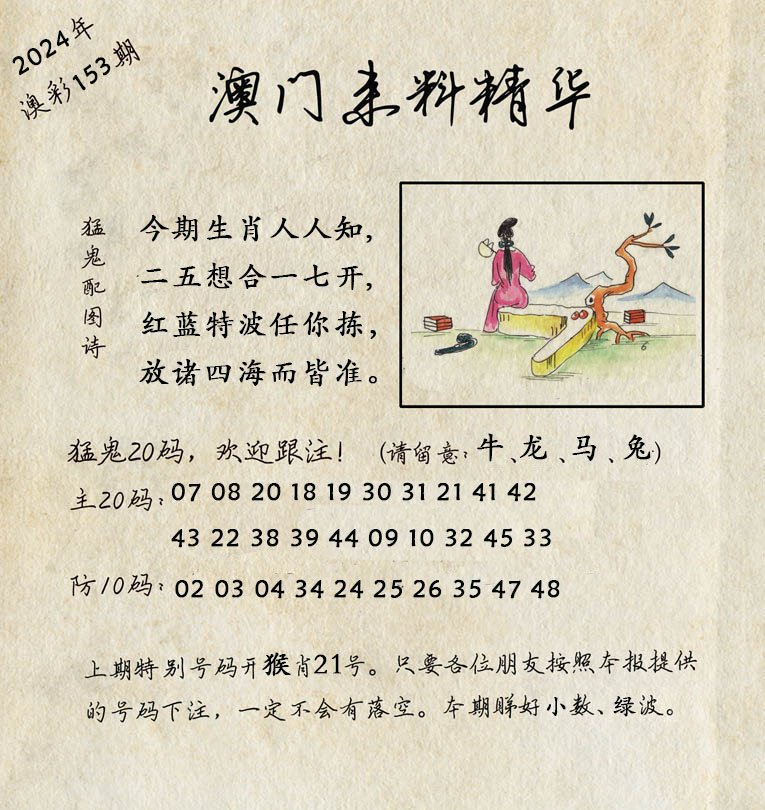 2024年
澳彩153期
澳门来料精华
猛鬼配图诗
今期生肖人人知，
二五想合一七开，
红蓝特波任你拣，
放诸四海而皆准。
6
猛鬼20码，欢迎跟注！（请留意：牛、龙、马、兔）
主20码：07 08 20 18 19 30 31 21 41 42
43 22 38 39 44 09 10 32 45 33
防10码：02 03 04 34 24 25 26 35 47 48
上期特别号码开猴肖21号。只要各位朋友按照本报提供
的号码下注，一定不会有落空。本期睇好小数、绿波。